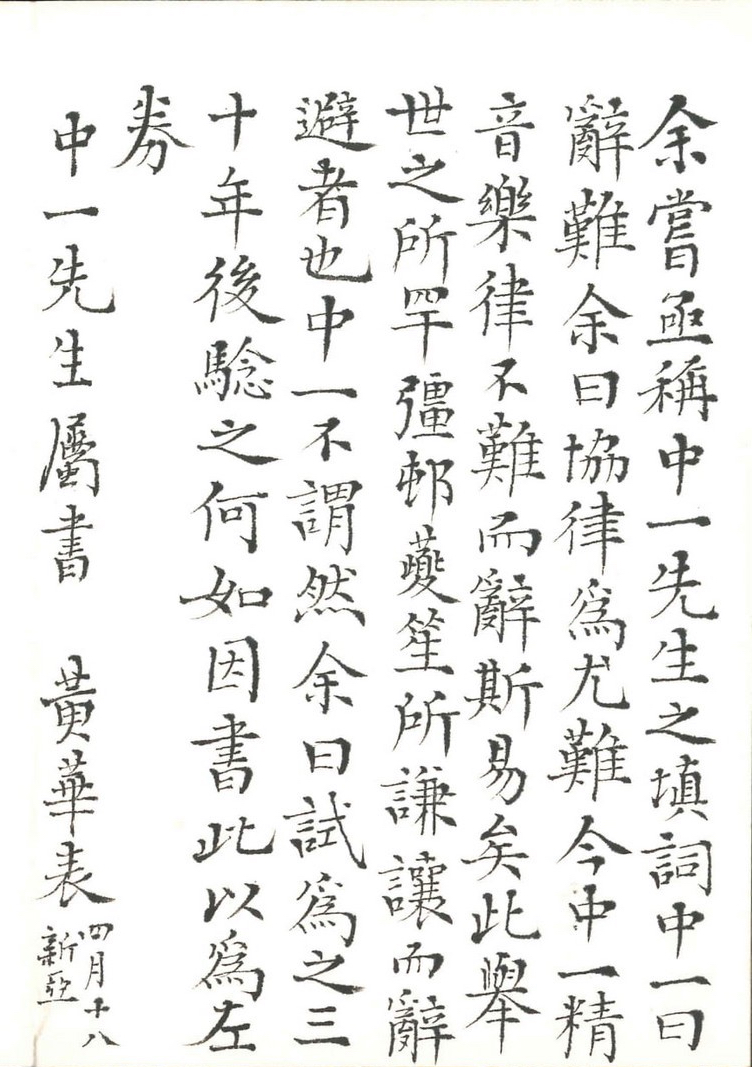 余嘗亟稱中一先生之填詞中一曰
辭難余曰協律爲尤難今中一精
音樂律不難而辭斯易矣此舉
世之所罕彊邨蘷笙所謙讓而辭
避者也中一不謂然余曰試爲之三
十年後驗之何如因書此以爲左
券
中一先生屬書 黃華表 四月十八
新亞